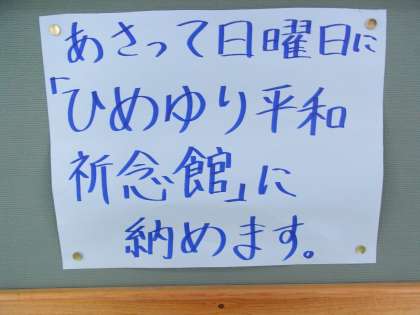 あさって日曜日に
「ひめゆり平和
祈念館」に
納めます。